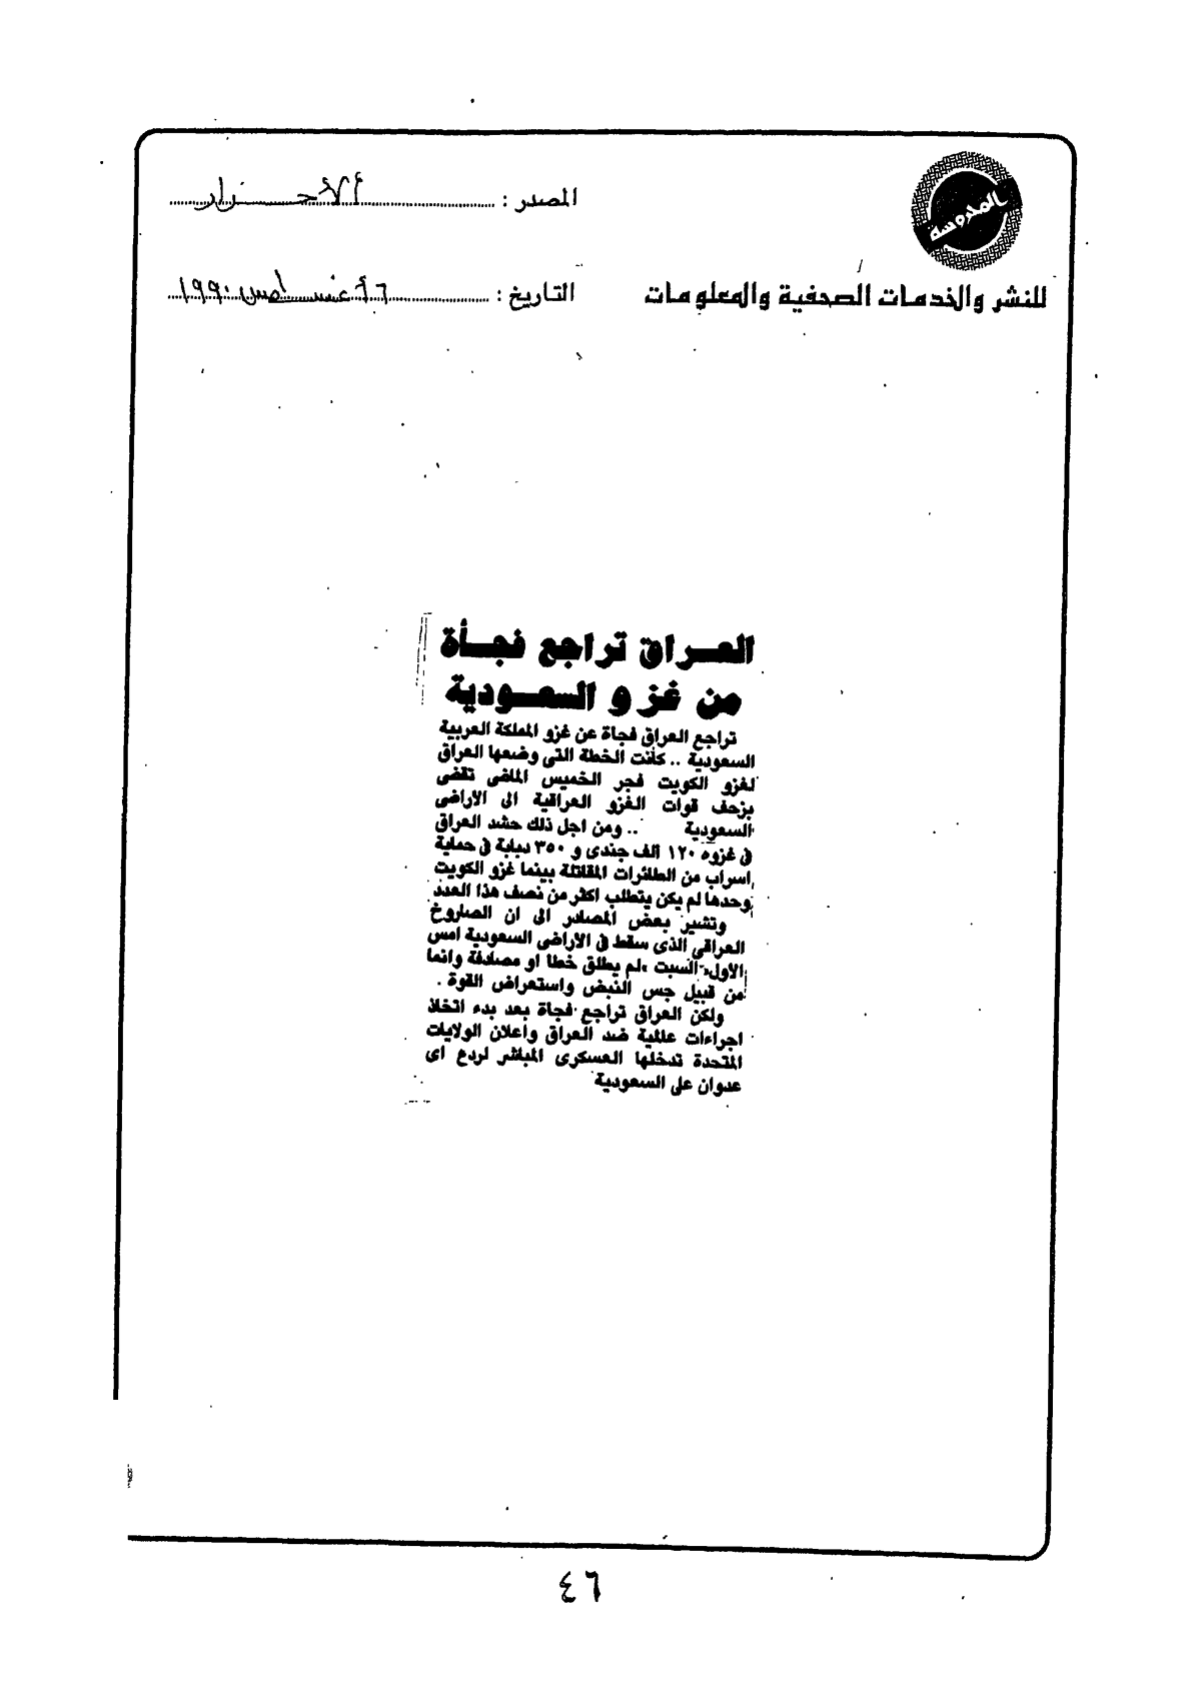 المدروسة
للنشر والخدمات الصحفية والمعلومات
المصدر :
التاريخ : أغسطس ١٩٩٠
العراق تراجع فجأة
من غزو السعودية
تراجع العراق فجاة عن غزو المملكة العربية
السعودية .. كانت الخطة التى وضعها العراق
لغزو الكويت فجر الخميس الماضى تقضى
بزحف قوات الغزو العراقية الى الاراضى
السعودية .. ومن اجل ذلك حشد العراق
فى غزوه ١٢٠ الف جندى و ٣٥٠ دبابة فى حماية
اسراب من الطائرات المقاتلة بينما غزو الكويت
وحدها لم يكن يتطلب اكثر من نصف هذا العدد
وتشير بعض المصادر الى ان الصاروخ
العراقى الذى سقط فى الاراضى السعودية امس
الاول السبت لم يطلق خطا او مصادفة وانما
من قبيل جس النبض واستعراض القوة .
ولكن العراق تراجع فجاة بعد بدء اتخاذ
اجراءات عالمية ضد العراق واعلان الولايات
المتحدة تدخلها العسكرى المباشر لردع اى
عدوان على السعودية
٤٦